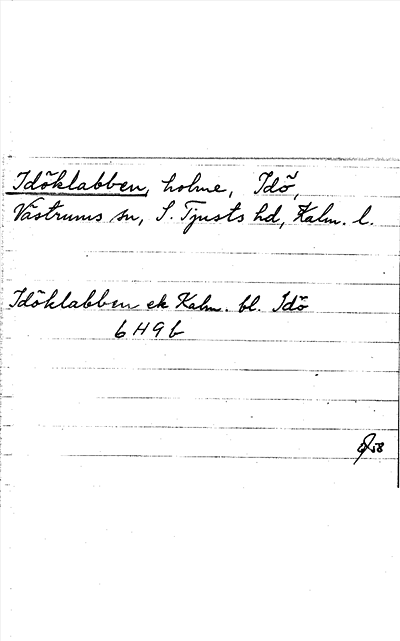 Idöklabben, holme, Idö,
Västrums sn, S. Tjusts hd, Kalm. l.
Idöklabben ek Kalm. bl. Idö
6 H 9 b